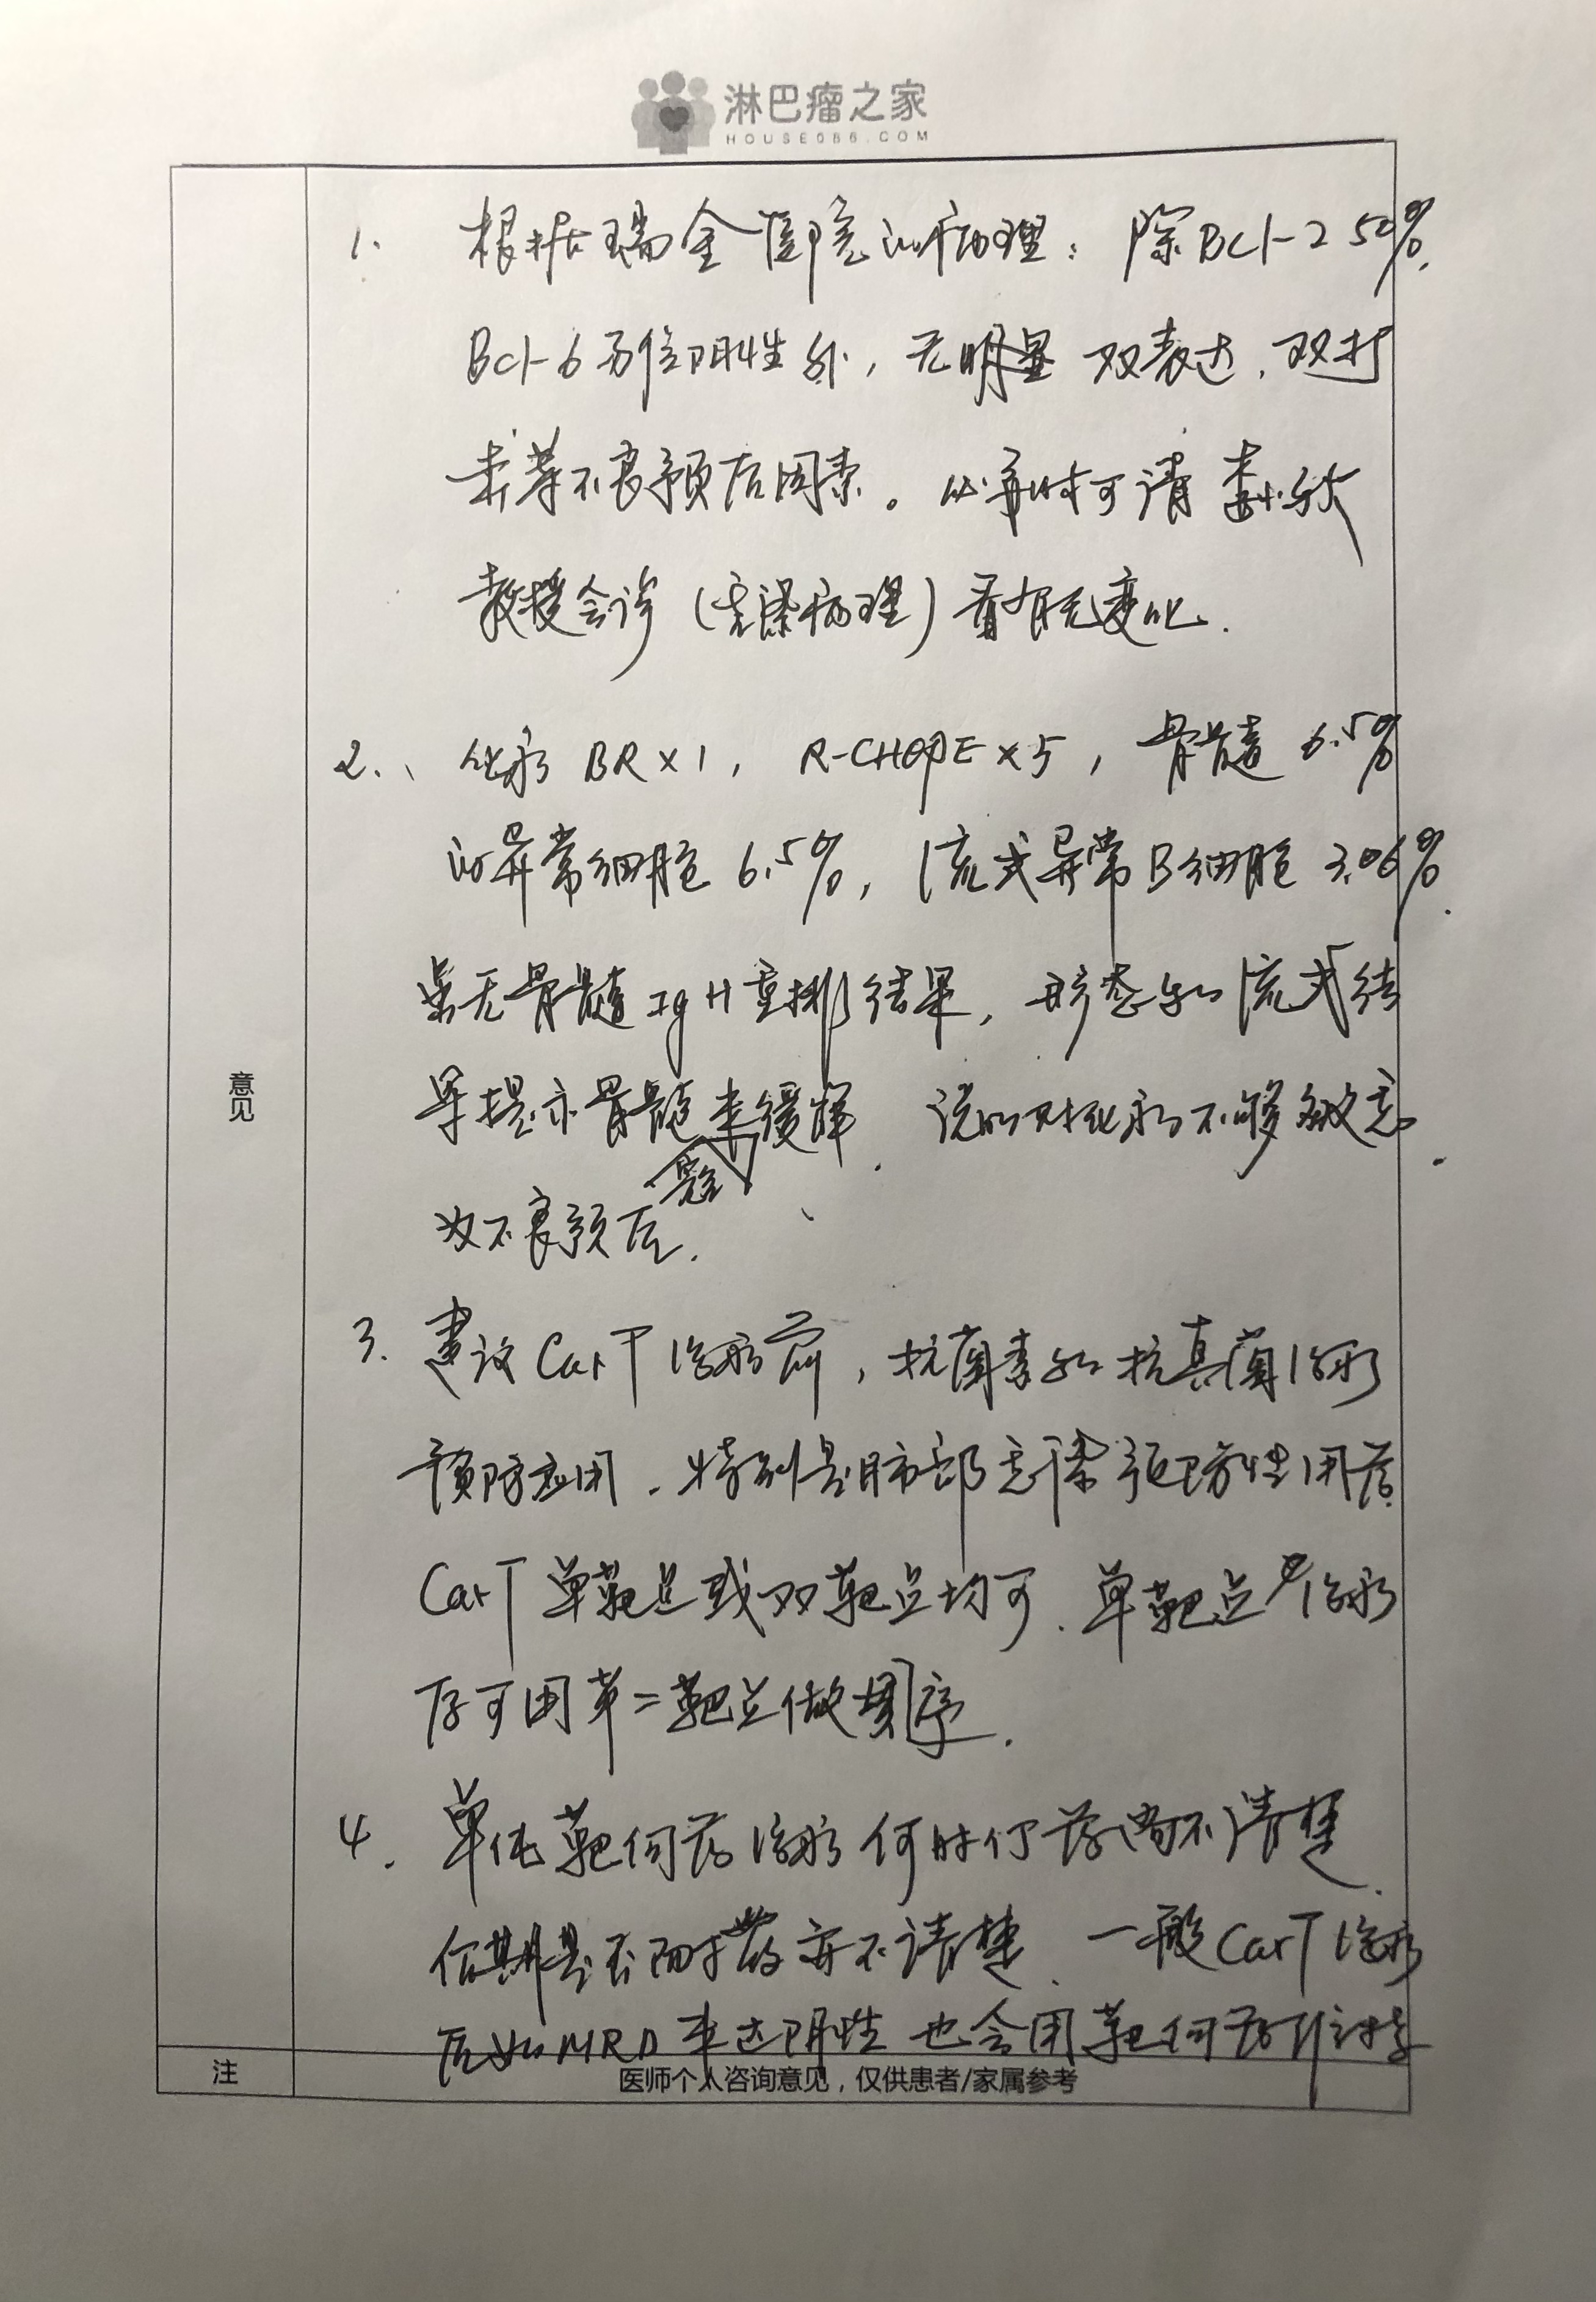 淋巴瘤之家
HOUSE086.COM
1. 根据瑞金医院的病理:除Bcl-2 50%,
Bcl-6易位阴性外,无明显双表达、双打
击等不良预后因素。必要时可请李小秋
教授会诊(会诊病理)看有无变化.
2. 化疗 BR×1, R-CHOPE×5, 骨髓 6.5%
的异常细胞 6.5%, 流式异常B细胞 3.06%.
虽无骨髓IgH重排结果, 形态和流式结
果提示骨髓未缓解. 说明对化疗不够敏感
为不良预后.
3. 建议CarT治疗前, 抗菌素和抗真菌治疗
预防应用. 特别是肺部感染预防性用药
CarT单靶点或双靶点均可. 单靶点治疗
后可用第二靶点做序
4. 单纯靶向药治疗何时停药尚不清楚.
后期是否耐药亦不清楚. 一般CarT治疗
后如MRD未达阴性 也会用靶向药
意见
注
医师个人咨询意见,仅供患者/家属参考